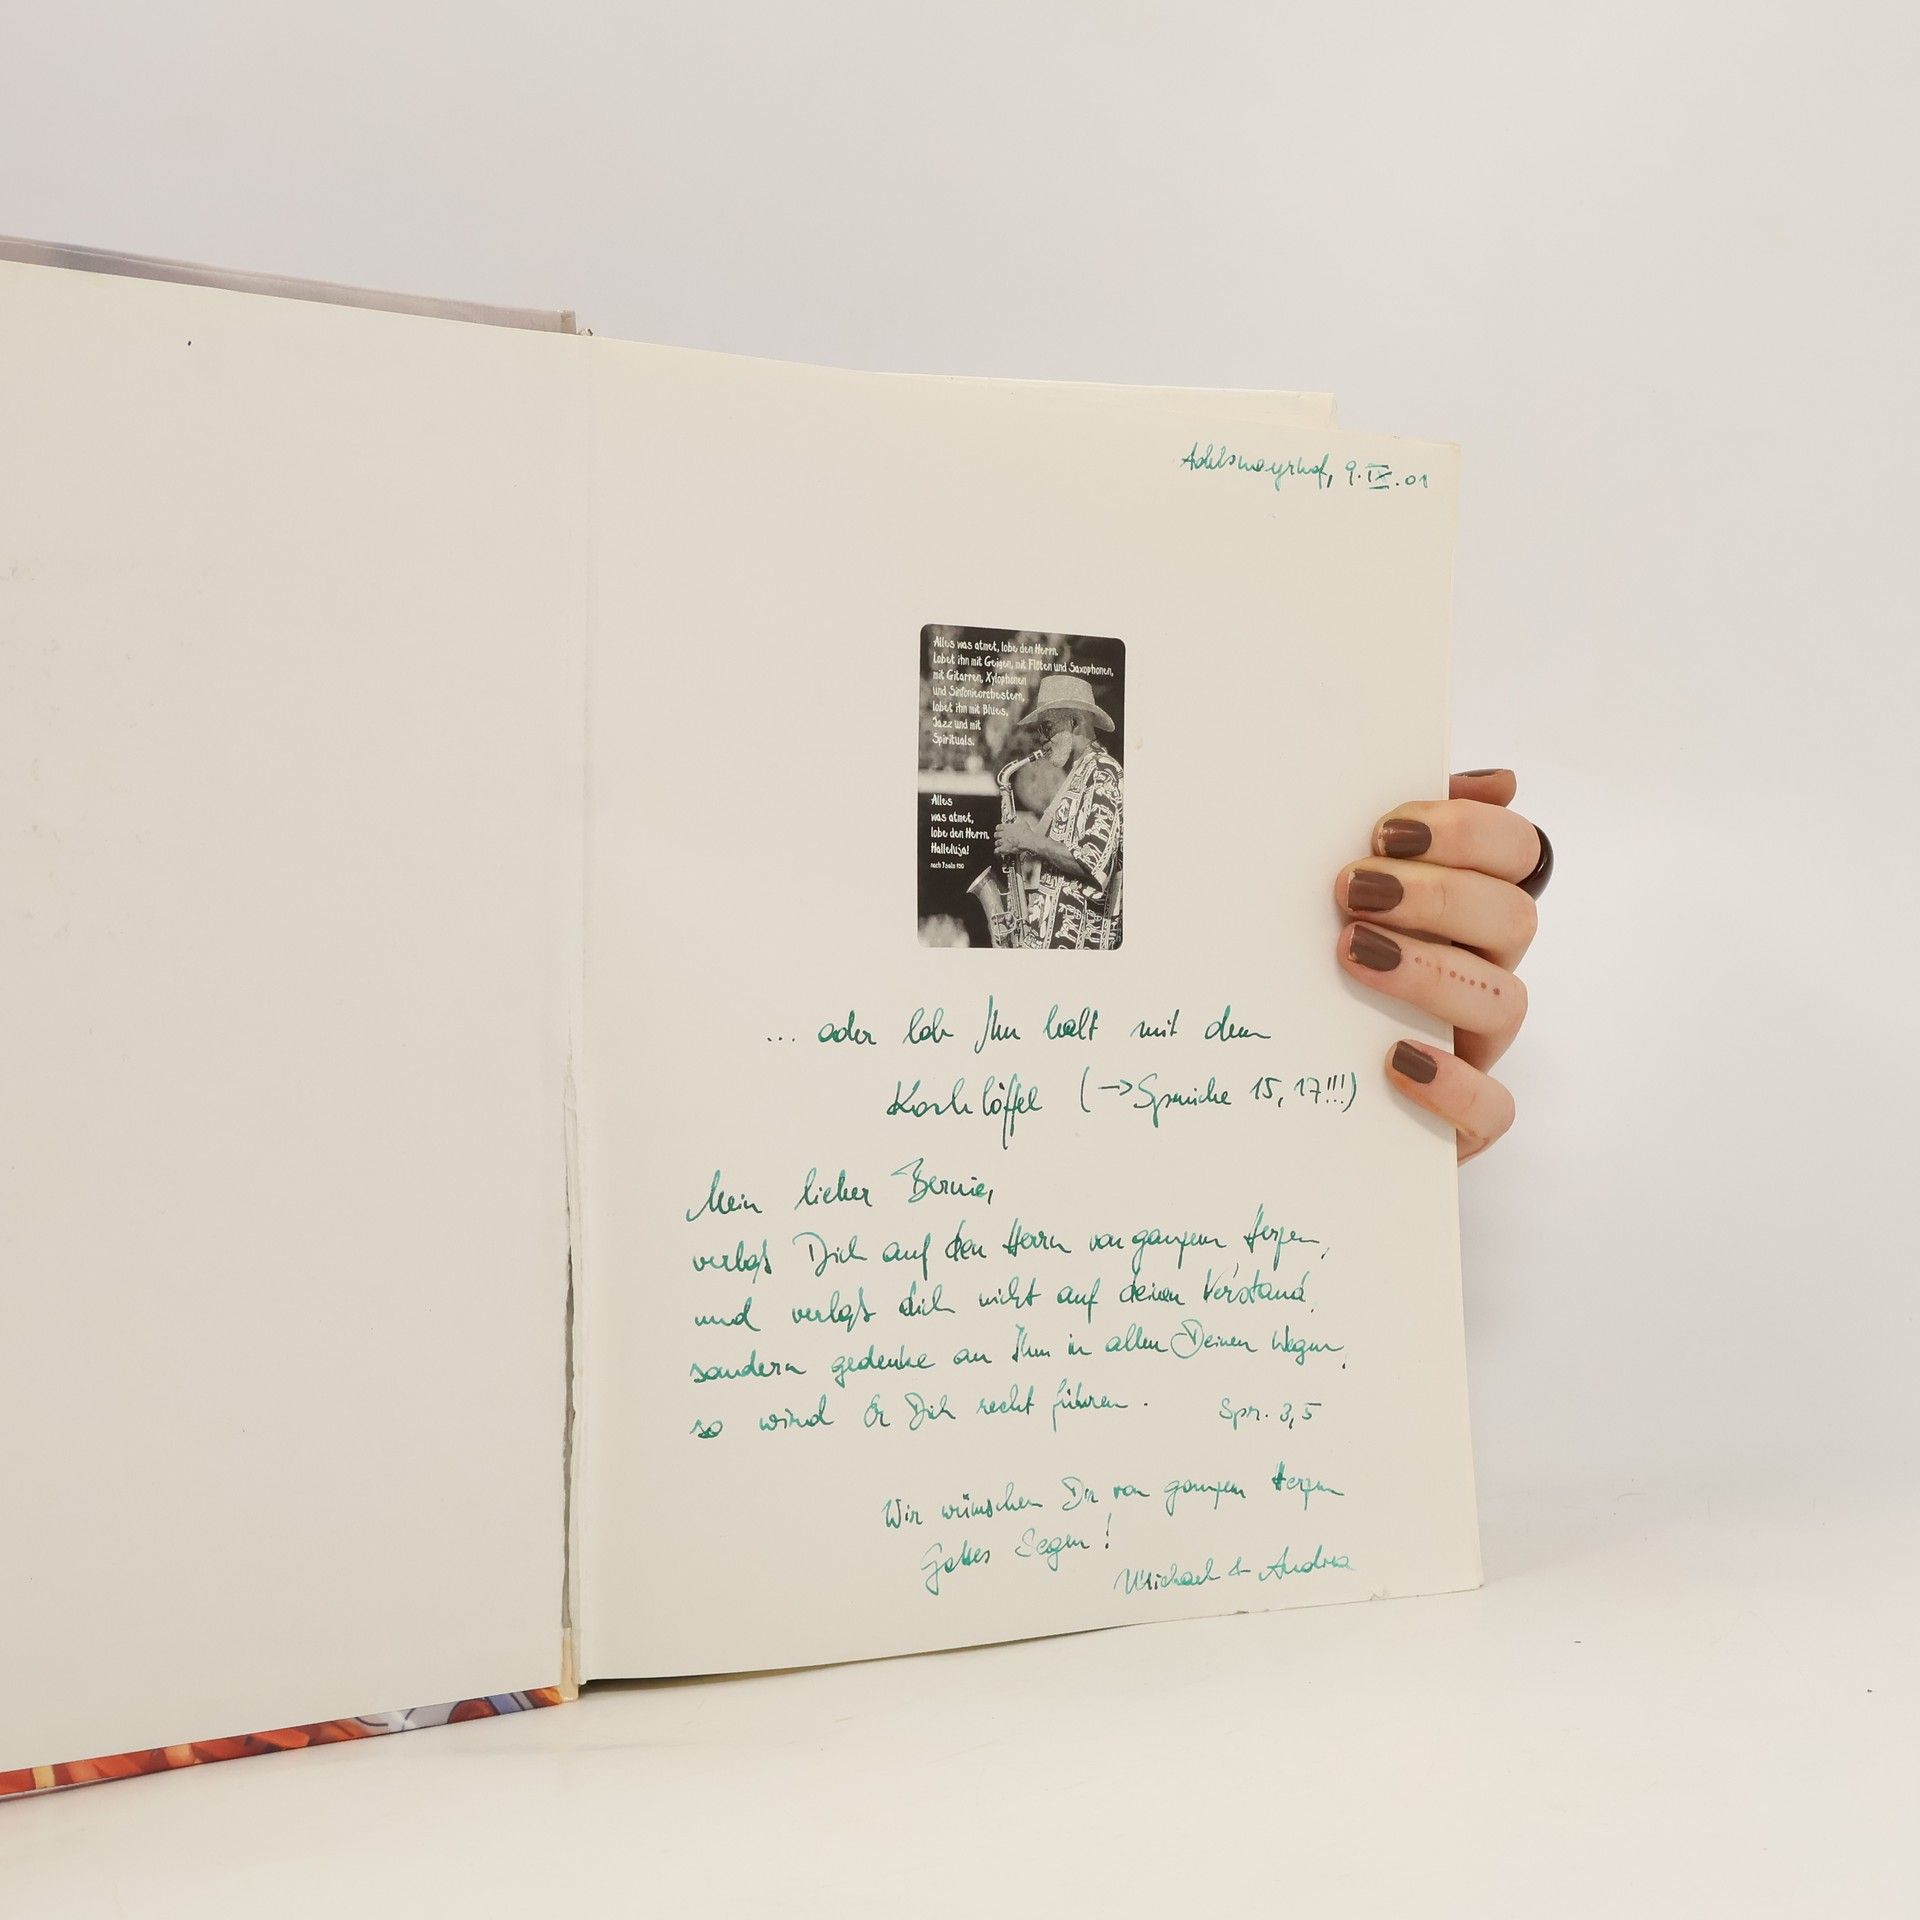 Adelsmayrhof, 9.IX.01
Alles was atmet, lobe den Herrn.
Lobet ihn mit Geigen, mit Flöten und Saxophonen,
mit Gitarren, Xylophonen
und Sinfonieorchestern,
lobet ihn mit Blues,
Jazz und mit
Spirituals.
Alles
was atmet,
lobe den Herrn.
Halleluja!
nach Psalm 150
... oder lob Ihn halt mit dem
Kochlöffel (→Sprüche 15, 17!!!)
Mein lieber Bernie,
verlaß Dich auf den Herrn von ganzem Herzen,
und verlaß dich nicht auf deinen Verstand,
sondern gedenke an Ihn in allen Deinen Wegen,
so wird Er Dich recht führen. Spr. 3,5
Wir wünschen Dir von ganzem Herzen
Gottes Segen!
Michael & Andrea